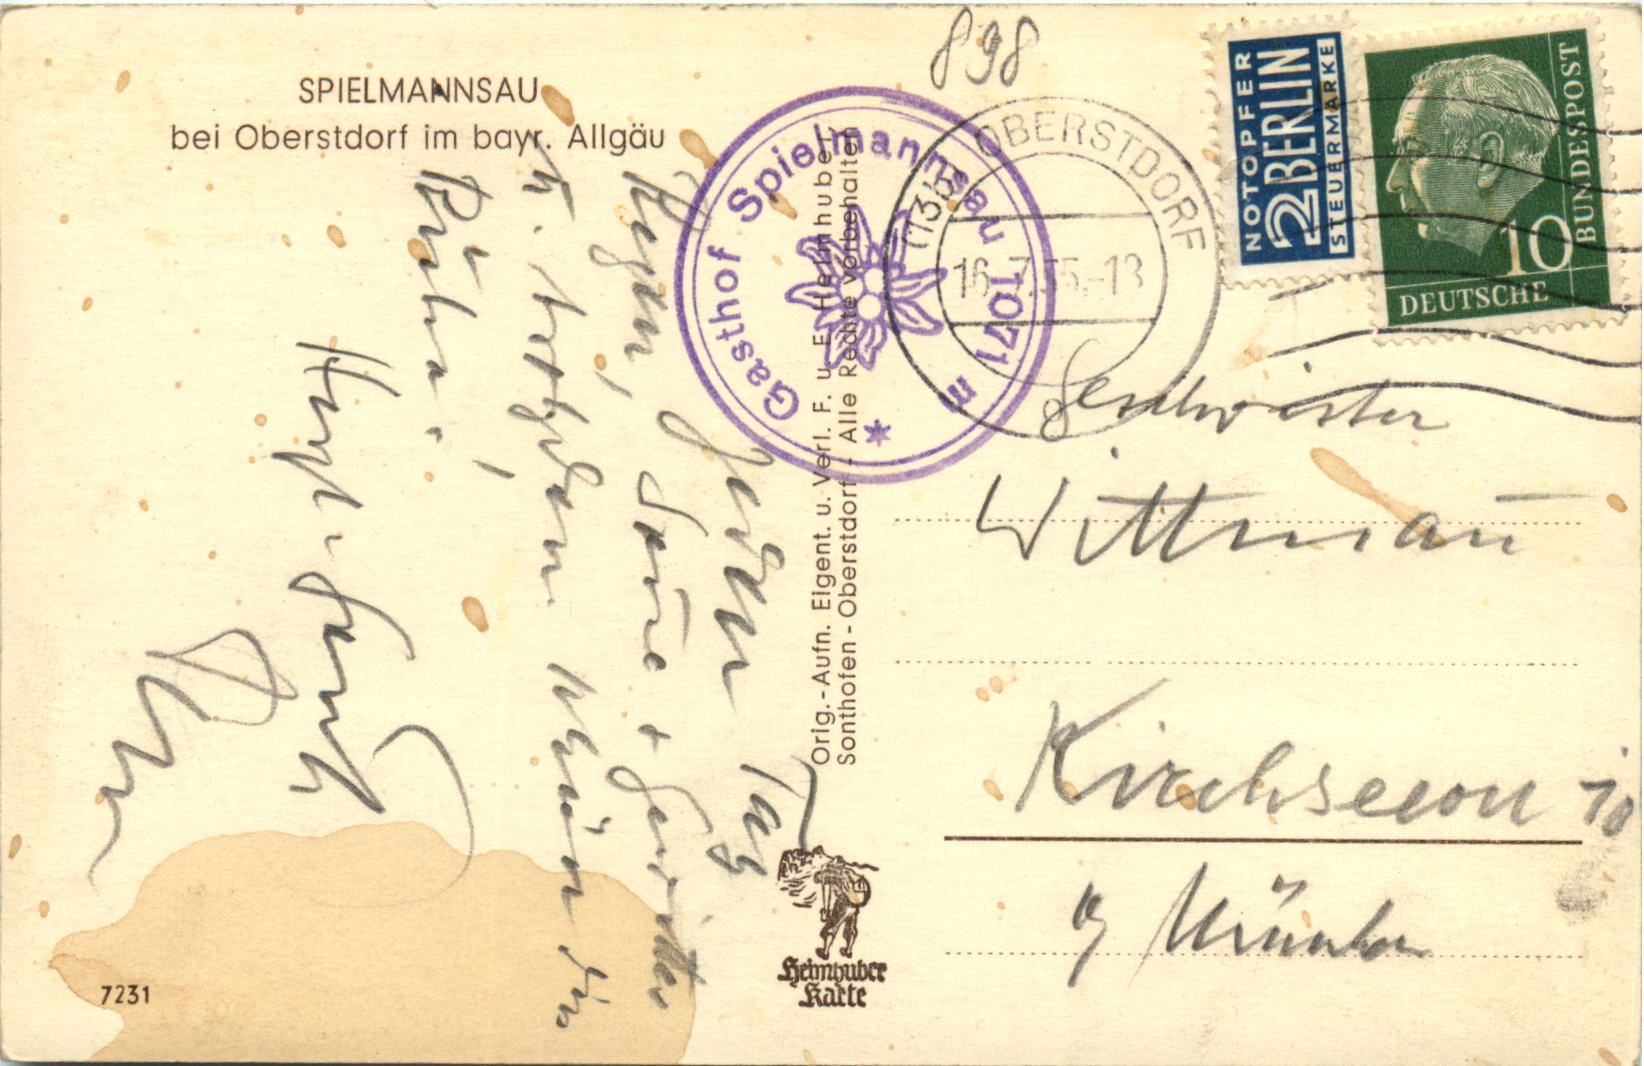 SPIELMANNSAU
bei Oberstdorf im bayr. Allgäu
898
Gasthof Spielmannsau 1071 m
(13b) OBERSTDORF
16.7.55.-18
NOTOPFER
2 BERLIN
STEUERMARKE
10
DEUTSCHE
BUNDESPOST
Jeden Tag
Regen, + Gewitter
u. trotzdem
Ruhe.
Orig.-Aufn. Eigent. u. Verl. F. u. E. Heimhuber
Sonthofen - Oberstdorf - Alle Rechte vorbehalten
Geschwister
Wittmann
Kirchseeon
b/ München
Heimhuber
Karte
7231